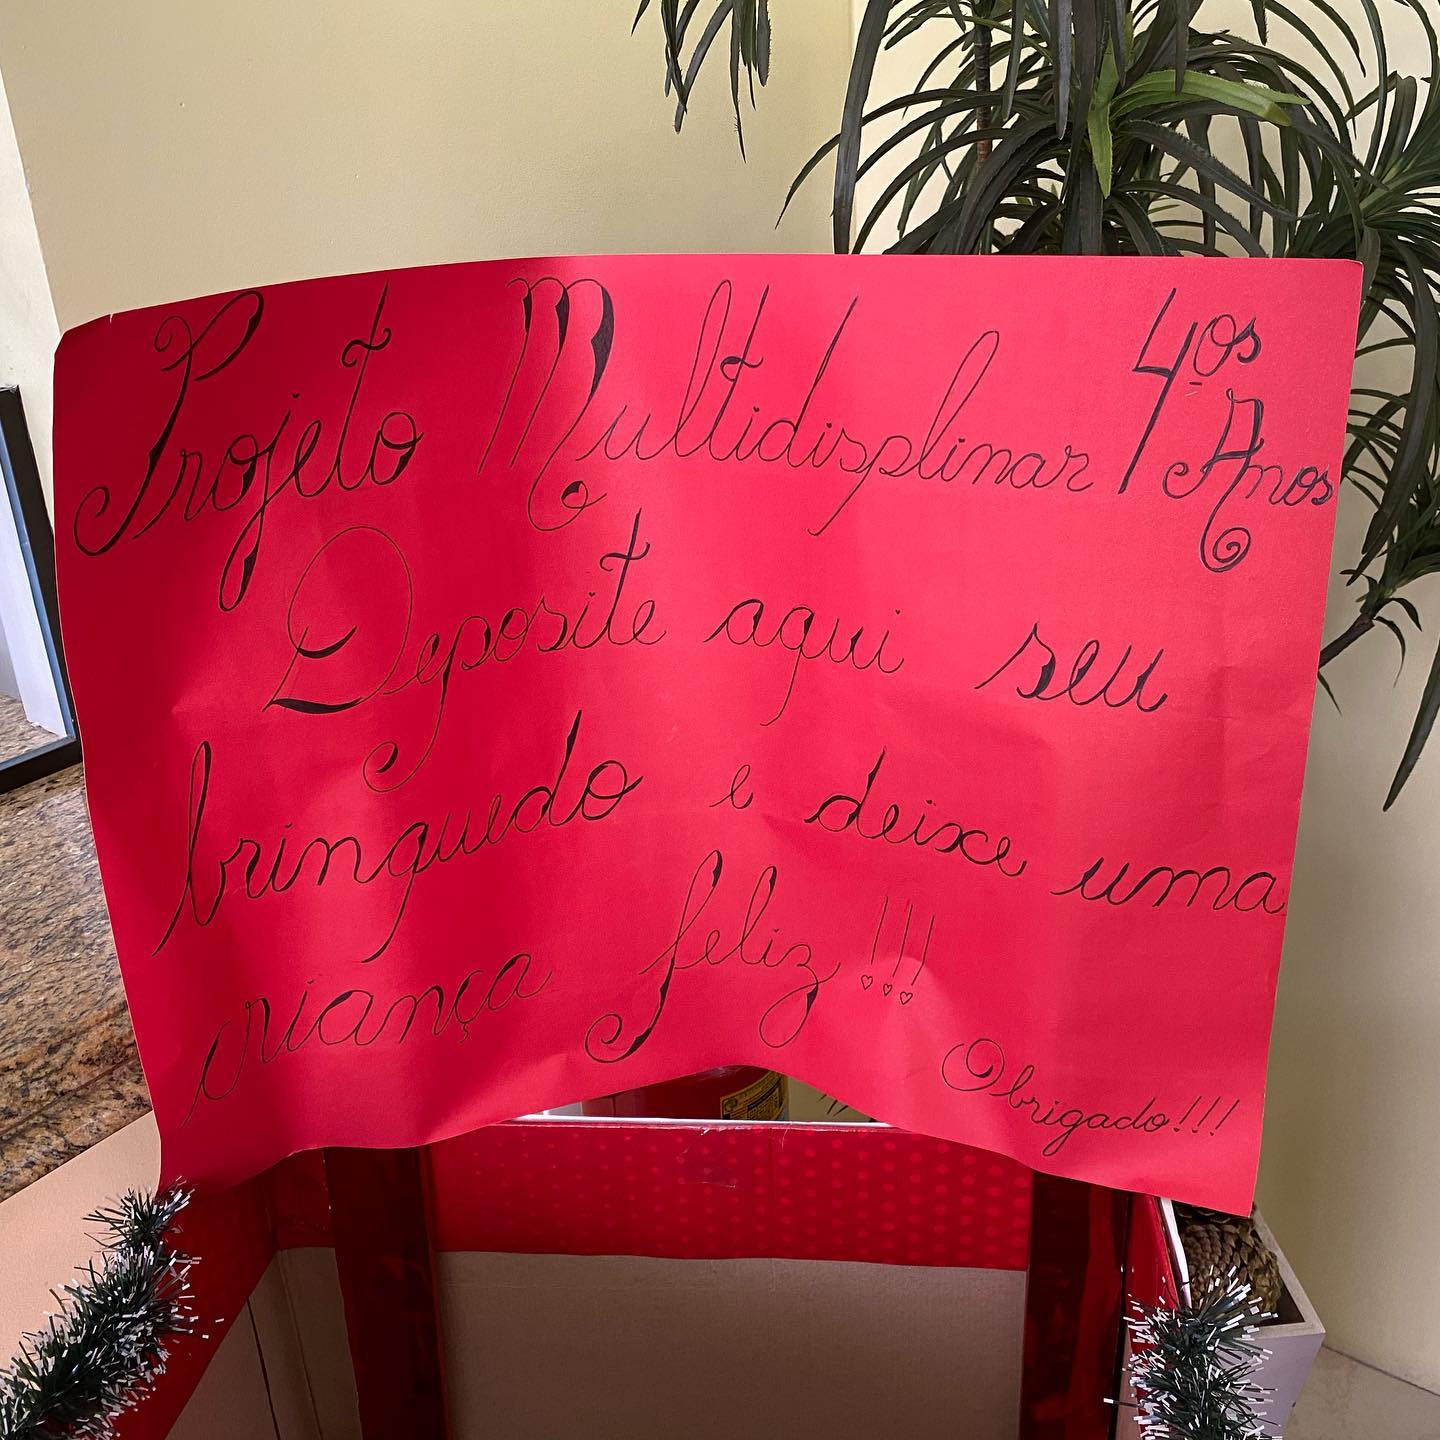 Projeto Multidisplinar 4ºs Anos
Deposite aqui seu
brinquedo e deixe uma
criança feliz!!!
Obrigado!!!